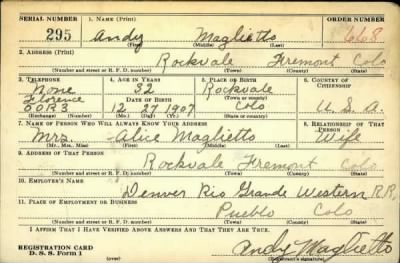 SERIAL NUMBER 1. NAME (Print) ORDER NUMBER
295 Andy Maglietto 668
(First) (Middle) (Last)
2. ADDRESS (Print)
Rockvale Fremont Colo
(Number and street or R. F. D. number) (Town) (County) (State)
3. TELEPHONE 4. AGE IN YEARS 5. PLACE OF BIRTH 6. COUNTRY OF CITIZENSHIP
None 32 Rockvale
Florence DATE OF BIRTH (Town or county)
00R3 12 27 1907 Colo U. S. A.
(Exchange) (Number) (Mo.) (Day) (Yr.) (State or country)
7. NAME OF PERSON WHO WILL ALWAYS KNOW YOUR ADDRESS 8. RELATIONSHIP OF THAT PERSON
Mrs. Alice Maglietto Wife
(Mr., Mrs., Miss) (First) (Middle) (Last)
9. ADDRESS OF THAT PERSON
Rockvale Fremont Colo
(Number and street or R. F. D. number) (Town) (County) (State)
10. EMPLOYER'S NAME
Denver Rio Grande Western R.R.
11. PLACE OF EMPLOYMENT OR BUSINESS
Pueblo Colo
(Number and street or R. F. D. number) (Town) (County) (State)
I AFFIRM THAT I HAVE VERIFIED ABOVE ANSWERS AND THAT THEY ARE TRUE.
REGISTRATION CARD
D. S. S. Form 1
Andy Maglietto
(Registrant's signature)